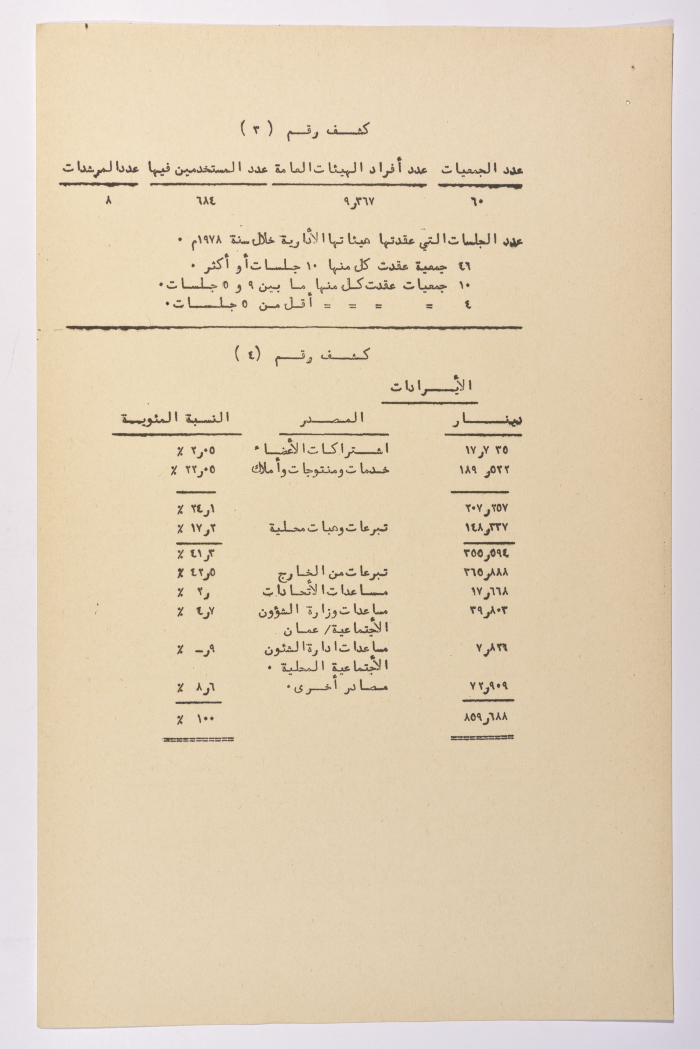 كشف رقم ( ٣ )
عدد الجمعيات عدد أفراد الهيئات العامة عدد المستخدمين فيها عدد المرشدات
٦٠ ٣٦٧ر٩ ٦٨٤ ٨
عدد الجلسات التي عقدتها هيئاتها الأدارية خلال سنة ١٩٧٨م .
٤٦ جمعية عقدت كل منها ١٠ جلسات أو أكثر .
١٠ جمعيات عقدت كل منها ما بين ٩ و ٥ جلسات .
٤ = = = = أقل من ٥ جلسات .
كشف رقم (٤ )
الأيرادات
دينار المصدر النسبة المئوية
٧٣٥ر١٧ اشتراكات الأعضاء ٠٥ر٢ ٪
٥٢٢ر١٨٩ خدمات ومنتوجات وأملاك ٠٥ر٢٢ ٪
٢٥٧ر٢٠٧ ١ر٢٤ ٪
٣٣٧ر١٤٨ تبرعات وهبات محلية ٢ر١٧ ٪
٥٩٤ر٣٥٥ ٣ر٤١ ٪
٨٨٨ر٣٦٥ تبرعات من الخارج ٥ر٤٢ ٪
٦٦٨ر١٧ مساعدات الأتحادات ر٢ ٪
٨٠٣ر٣٩ مساعدات وزارة الشؤون ٧ر٤ ٪
الأجتماعية / عمان
٨٢٦ر٧ مساعدات ادارة الشئون ٩ر- ٪
الأجتماعية المحلية .
٩٠٩ر٧٢ مصادر أخرى . ٦ر٨ ٪
٦٨٨ر٨٥٩ ١٠٠ ٪